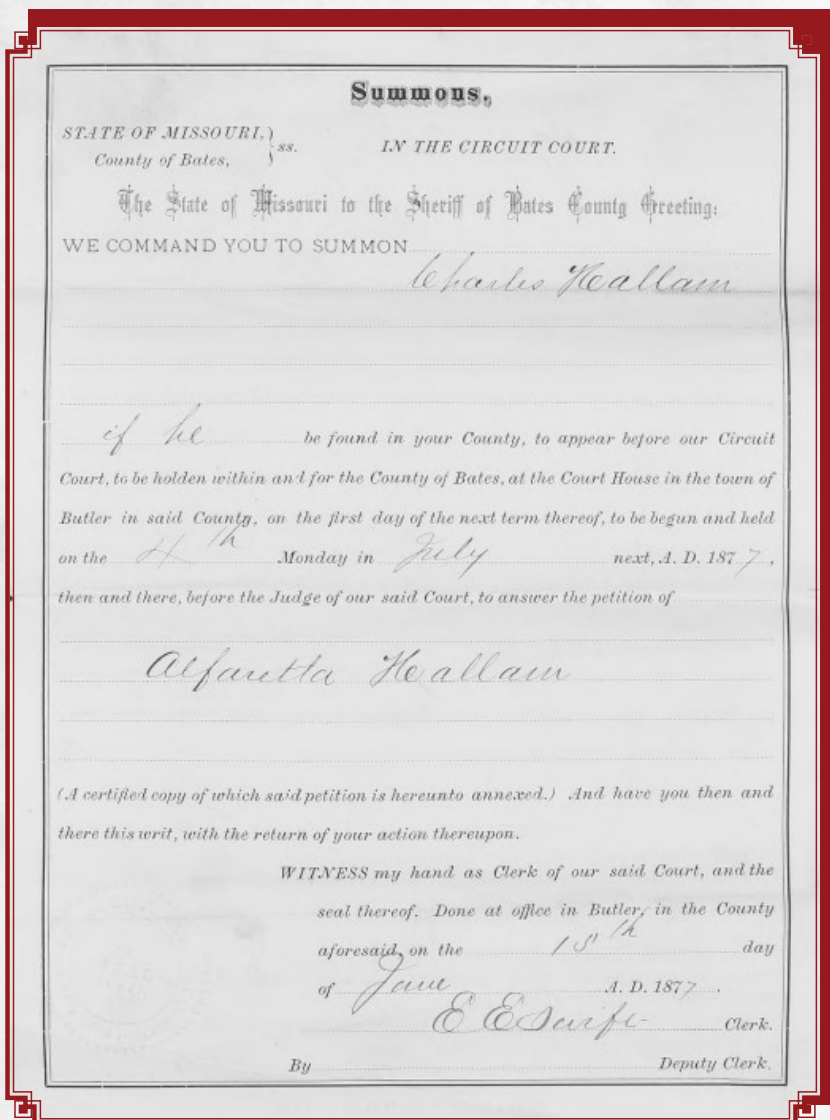 Summons,
STATE OF MISSOURI, } ss. IN THE CIRCUIT COURT.
County of Bates,
The State of Missouri to the Sheriff of Bates County Greeting:
WE COMMAND YOU TO SUMMON
Charles Hallam
if he be found in your County, to appear before our Circuit
Court, to be holden within and for the County of Bates, at the Court House in the town of
Butler in said County, on the first day of the next term thereof, to be begun and held
on the 4th Monday in July next, A. D. 1877,
then and there, before the Judge of our said Court, to answer the petition of
Alfaretta Hallam
(A certified copy of which said petition is hereunto annexed.) And have you then and
there this writ, with the return of your action thereupon.
WITNESS my hand as Clerk of our said Court, and the
seal thereof. Done at office in Butler, in the County
aforesaid, on the 15th day
of June A. D. 1877.
E E Clerk.
By Deputy Clerk.